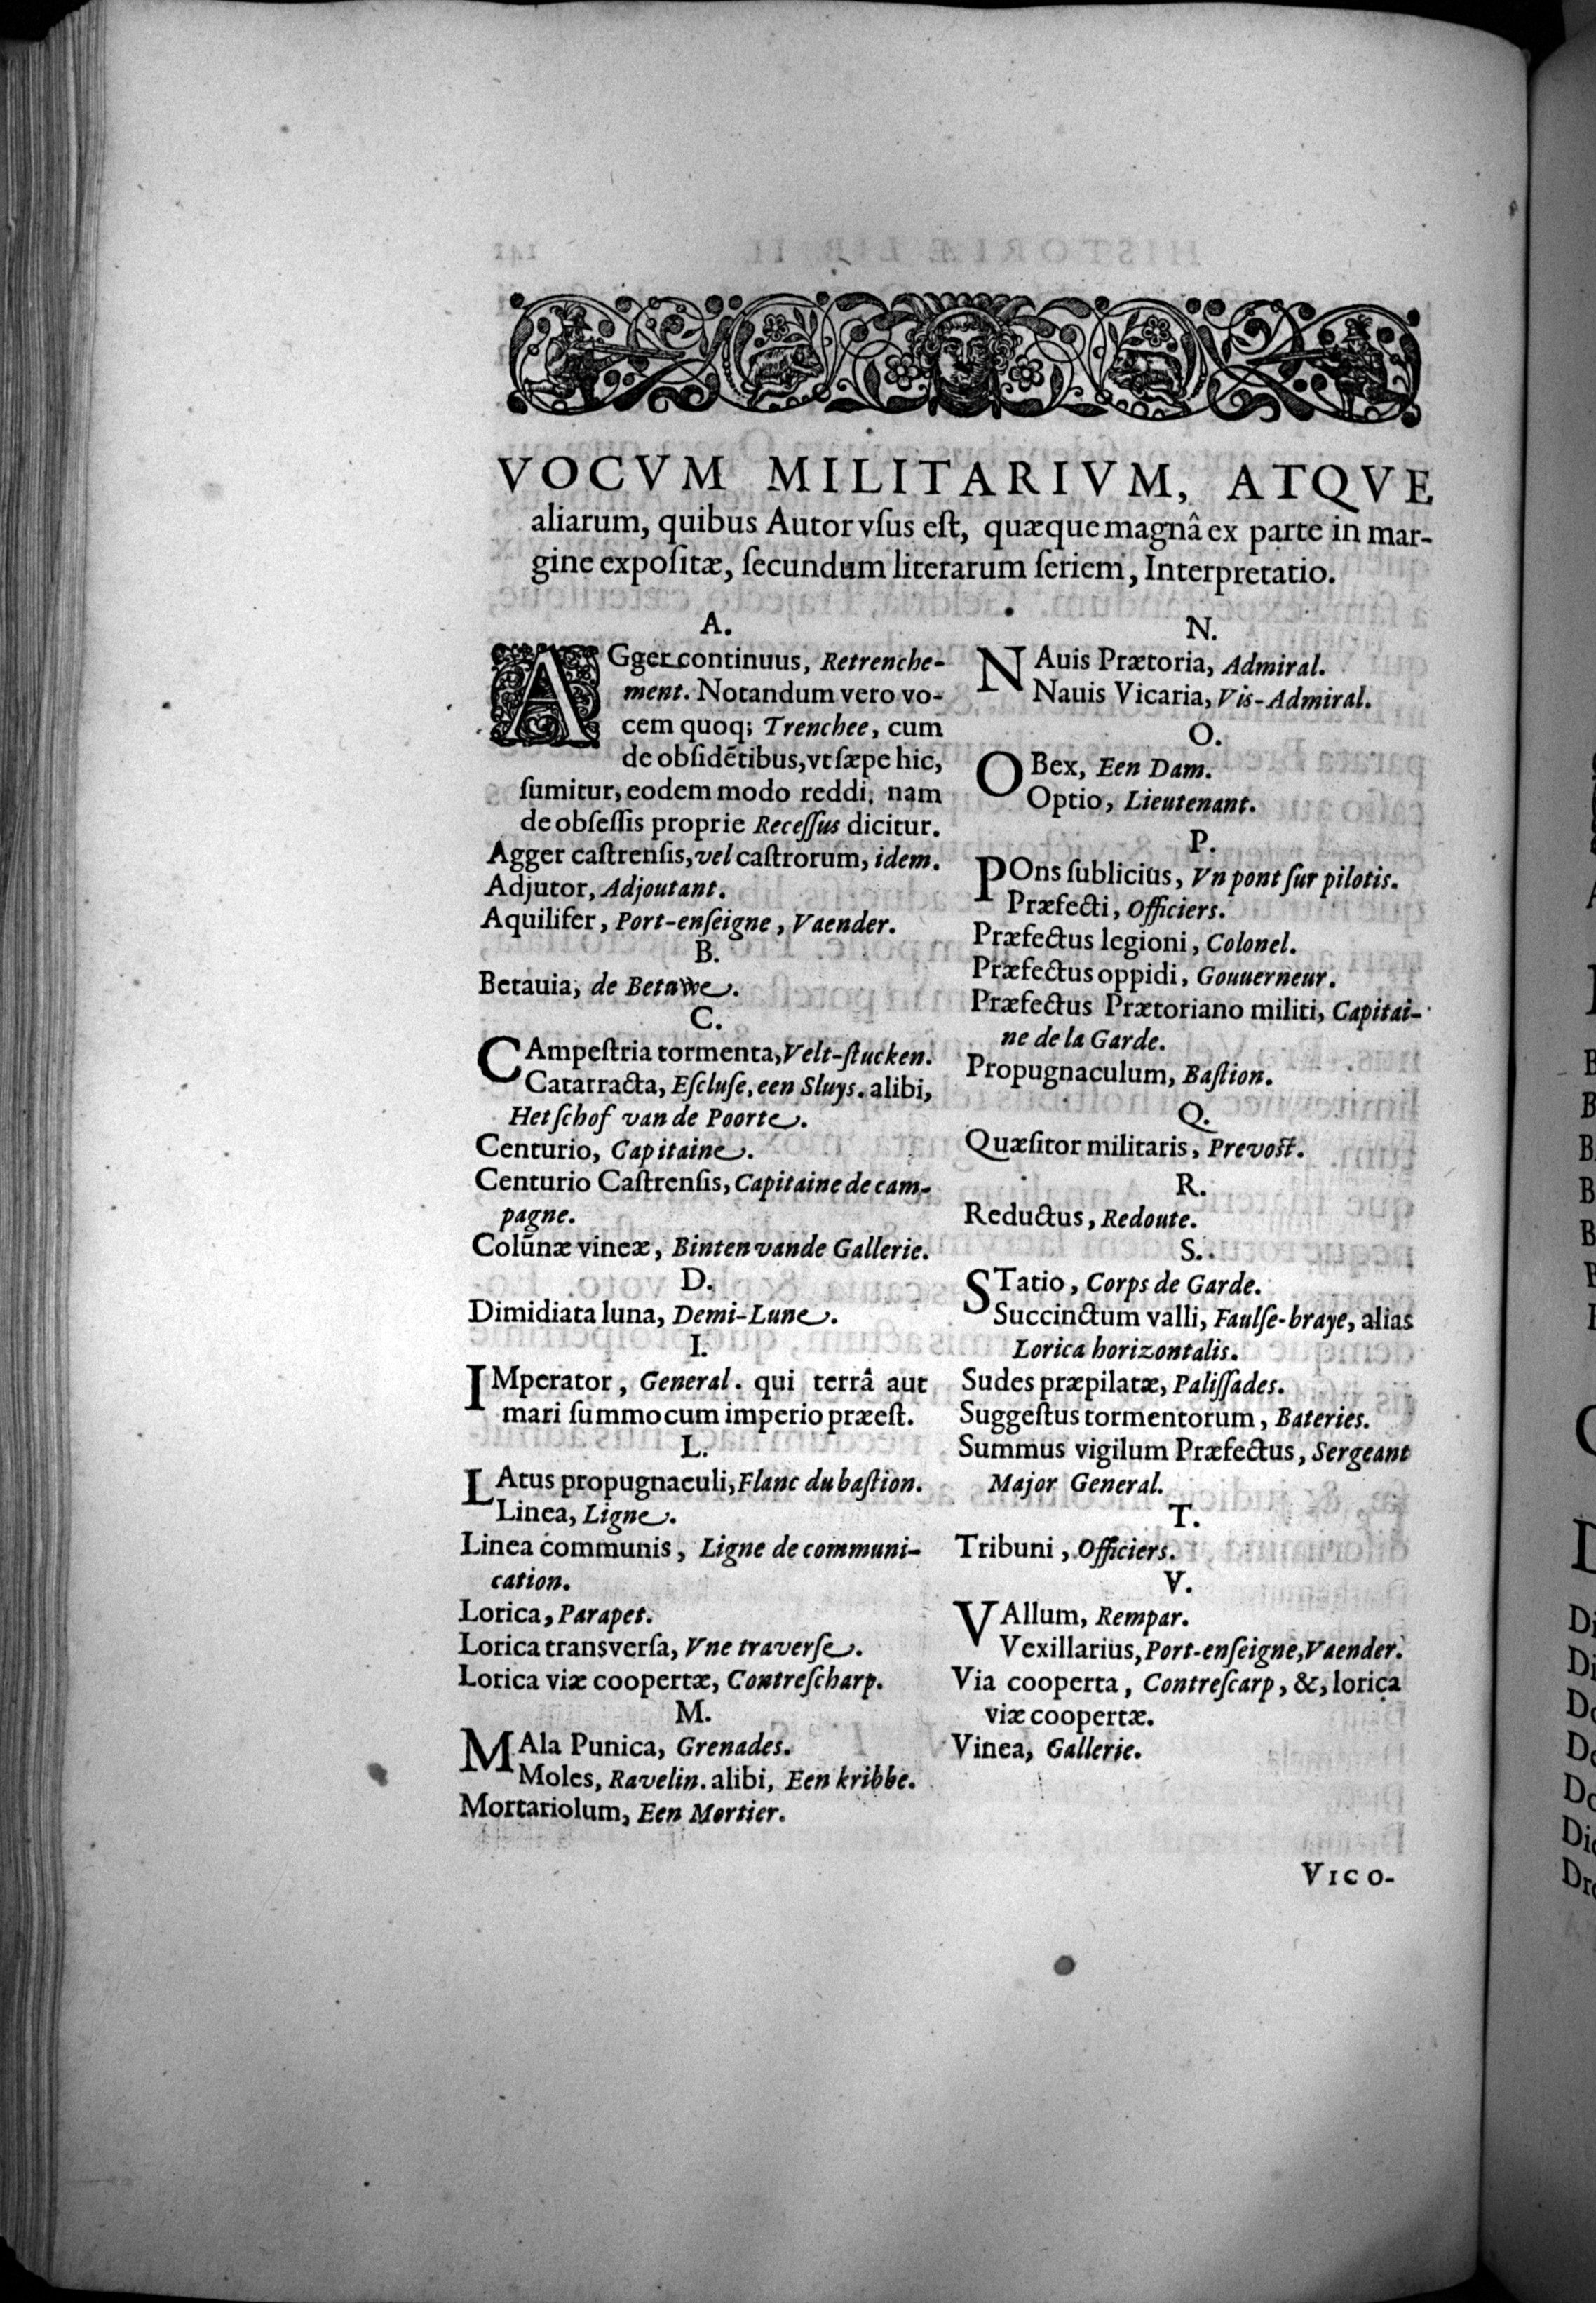 VOCVM MILITARIVM, ATQVE
aliarum, quibus Autor vſus eſt, quæque magnâ ex parte in mar-
gine expoſitæ, ſecundum literarum ſeriem, Interpretatio.
A.
AGger continuus, Retrenche-
ment. Notandum vero vo-
cem quoq; Trenchee, cum
de obſidētibus, vt ſæpe hic,
ſumitur, eodem modo reddi, nam
de obſeſſis proprie Receſſus dicitur.
Agger caſtrenſis, vel caſtrorum, idem.
Adjutor, Adjoutant.
Aquilifer, Port-enſeigne, Vaender.
B.
Betauia, de Betuwe.
C.
CAmpeſtria tormenta, Velt-ſtucken.
Catarracta, Eſcluſe, een Sluys. alibi,
Het ſchof van de Poorte.
Centurio, Capitaine.
Centurio Caſtrenſis, Capitaine de cam-
pagne.
Colūnæ vineæ, Binten vande Gallerie.
D.
Dimidiata luna, Demi-Lune.
I.
IMperator, General. qui terrâ aut
mari ſummo cum imperio præeſt.
L.
LAtus propugnaculi, Flanc du baſtion.
Linea, Ligne.
Linea communis, Ligne de communi-
cation.
Lorica, Parapet.
Lorica transverſa, Vne traverſe.
Lorica viæ coopertæ, Contreſcharp.
M.
MAla Punica, Grenades.
Moles, Ravelin. alibi, Een kribbe.
Mortariolum, Een Mortier.
N.
NAuis Prætoria, Admiral.
Nauis Vicaria, Vis-Admiral.
O.
OBex, Een Dam.
Optio, Lieutenant.
P.
POns ſublicius, Vn pont ſur pilotis.
Præfecti, Officiers.
Præfectus legioni, Colonel.
Præfectus oppidi, Gouuerneur.
Præfectus Prætoriano militi, Capitai-
ne de la Garde.
Propugnaculum, Baſtion.
Q.
Quæſitor militaris, Prevoſt.
R.
Reductus, Redoute.
S.
STatio, Corps de Garde.
Succinctum valli, Faulſe-braye, alias
Lorica horizontalis.
Sudes præpilatæ, Paliſſades.
Suggeſtus tormentorum, Bateries.
Summus vigilum Præfectus, Sergeant
Major General.
T.
Tribuni, Officiers.
V.
VAllum, Rempar.
Vexillarius, Port-enſeigne, Vaender.
Via cooperta, Contreſcarp, &, lorica
viæ coopertæ.
Vinea, Gallerie.
VICO-